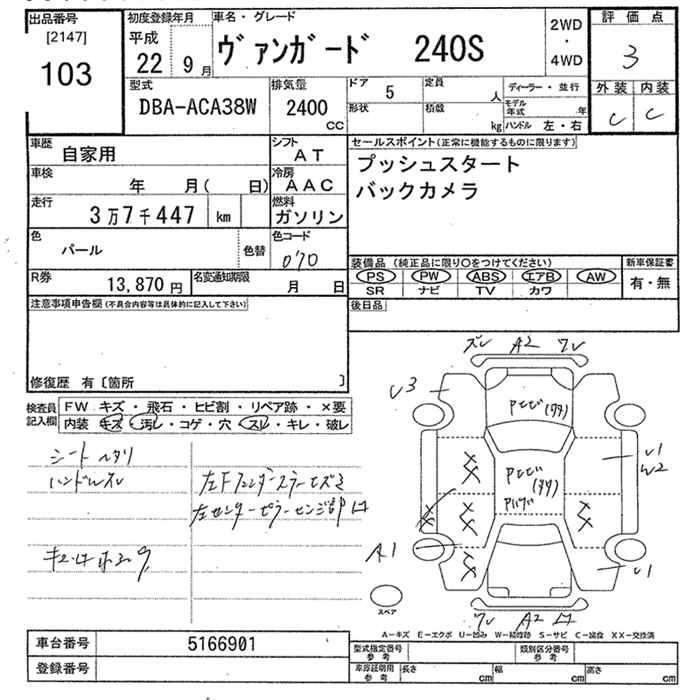 出品番号
[2147]
103
初度登録年月
平成
22年 9月
車名・グレード
ヴァンガード 240S
2WD
・
4WD
評価点
3
外装 内装
C C
型式
DBA-ACA38W
排気量
2400
CC
ドア 5
定員 人
形状
積載 kg
ディーラー・並行
モデル年式 年
ハンドル 左・右
車歴
自家用
シフト
AT
車検
年 月( 日)
冷房
AAC
走行
3万7千447 km
燃料
ガソリン
色
パール
色替
色コード
070
R券
13,870円
名変通知期限
月 日
セールスポイント(正常に機能するものに限ります)
プッシュスタート
バックカメラ
装備品 (純正品に限り○をつけてください)
新車保証書
PS PW ABS エアB AW
SR ナビ TV カワ
有・無
後日品
注意事項申告欄(不具合内容等は具体的に記入して下さい)
修復歴 有〔箇所 〕
検査員記入欄
FW キズ・飛石・ヒビ割・リペア跡・×要
内装 キズ・汚レ・コゲ・穴・スレ・キレ・破レ
シートヘタリ
ハンドルスレ
ズレ A2 ワレ
U3
U1
W2
A1
U1
スペア
ワレ A2
A-キズ E-エクボ U-凹み W-補修跡 S-サビ C-腐食 XX-交換済
車台番号
5166901
登録番号
型式指定番号
参考
類別区分番号
参考
車庫証明用
参考
長さ cm
幅 cm
高さ cm